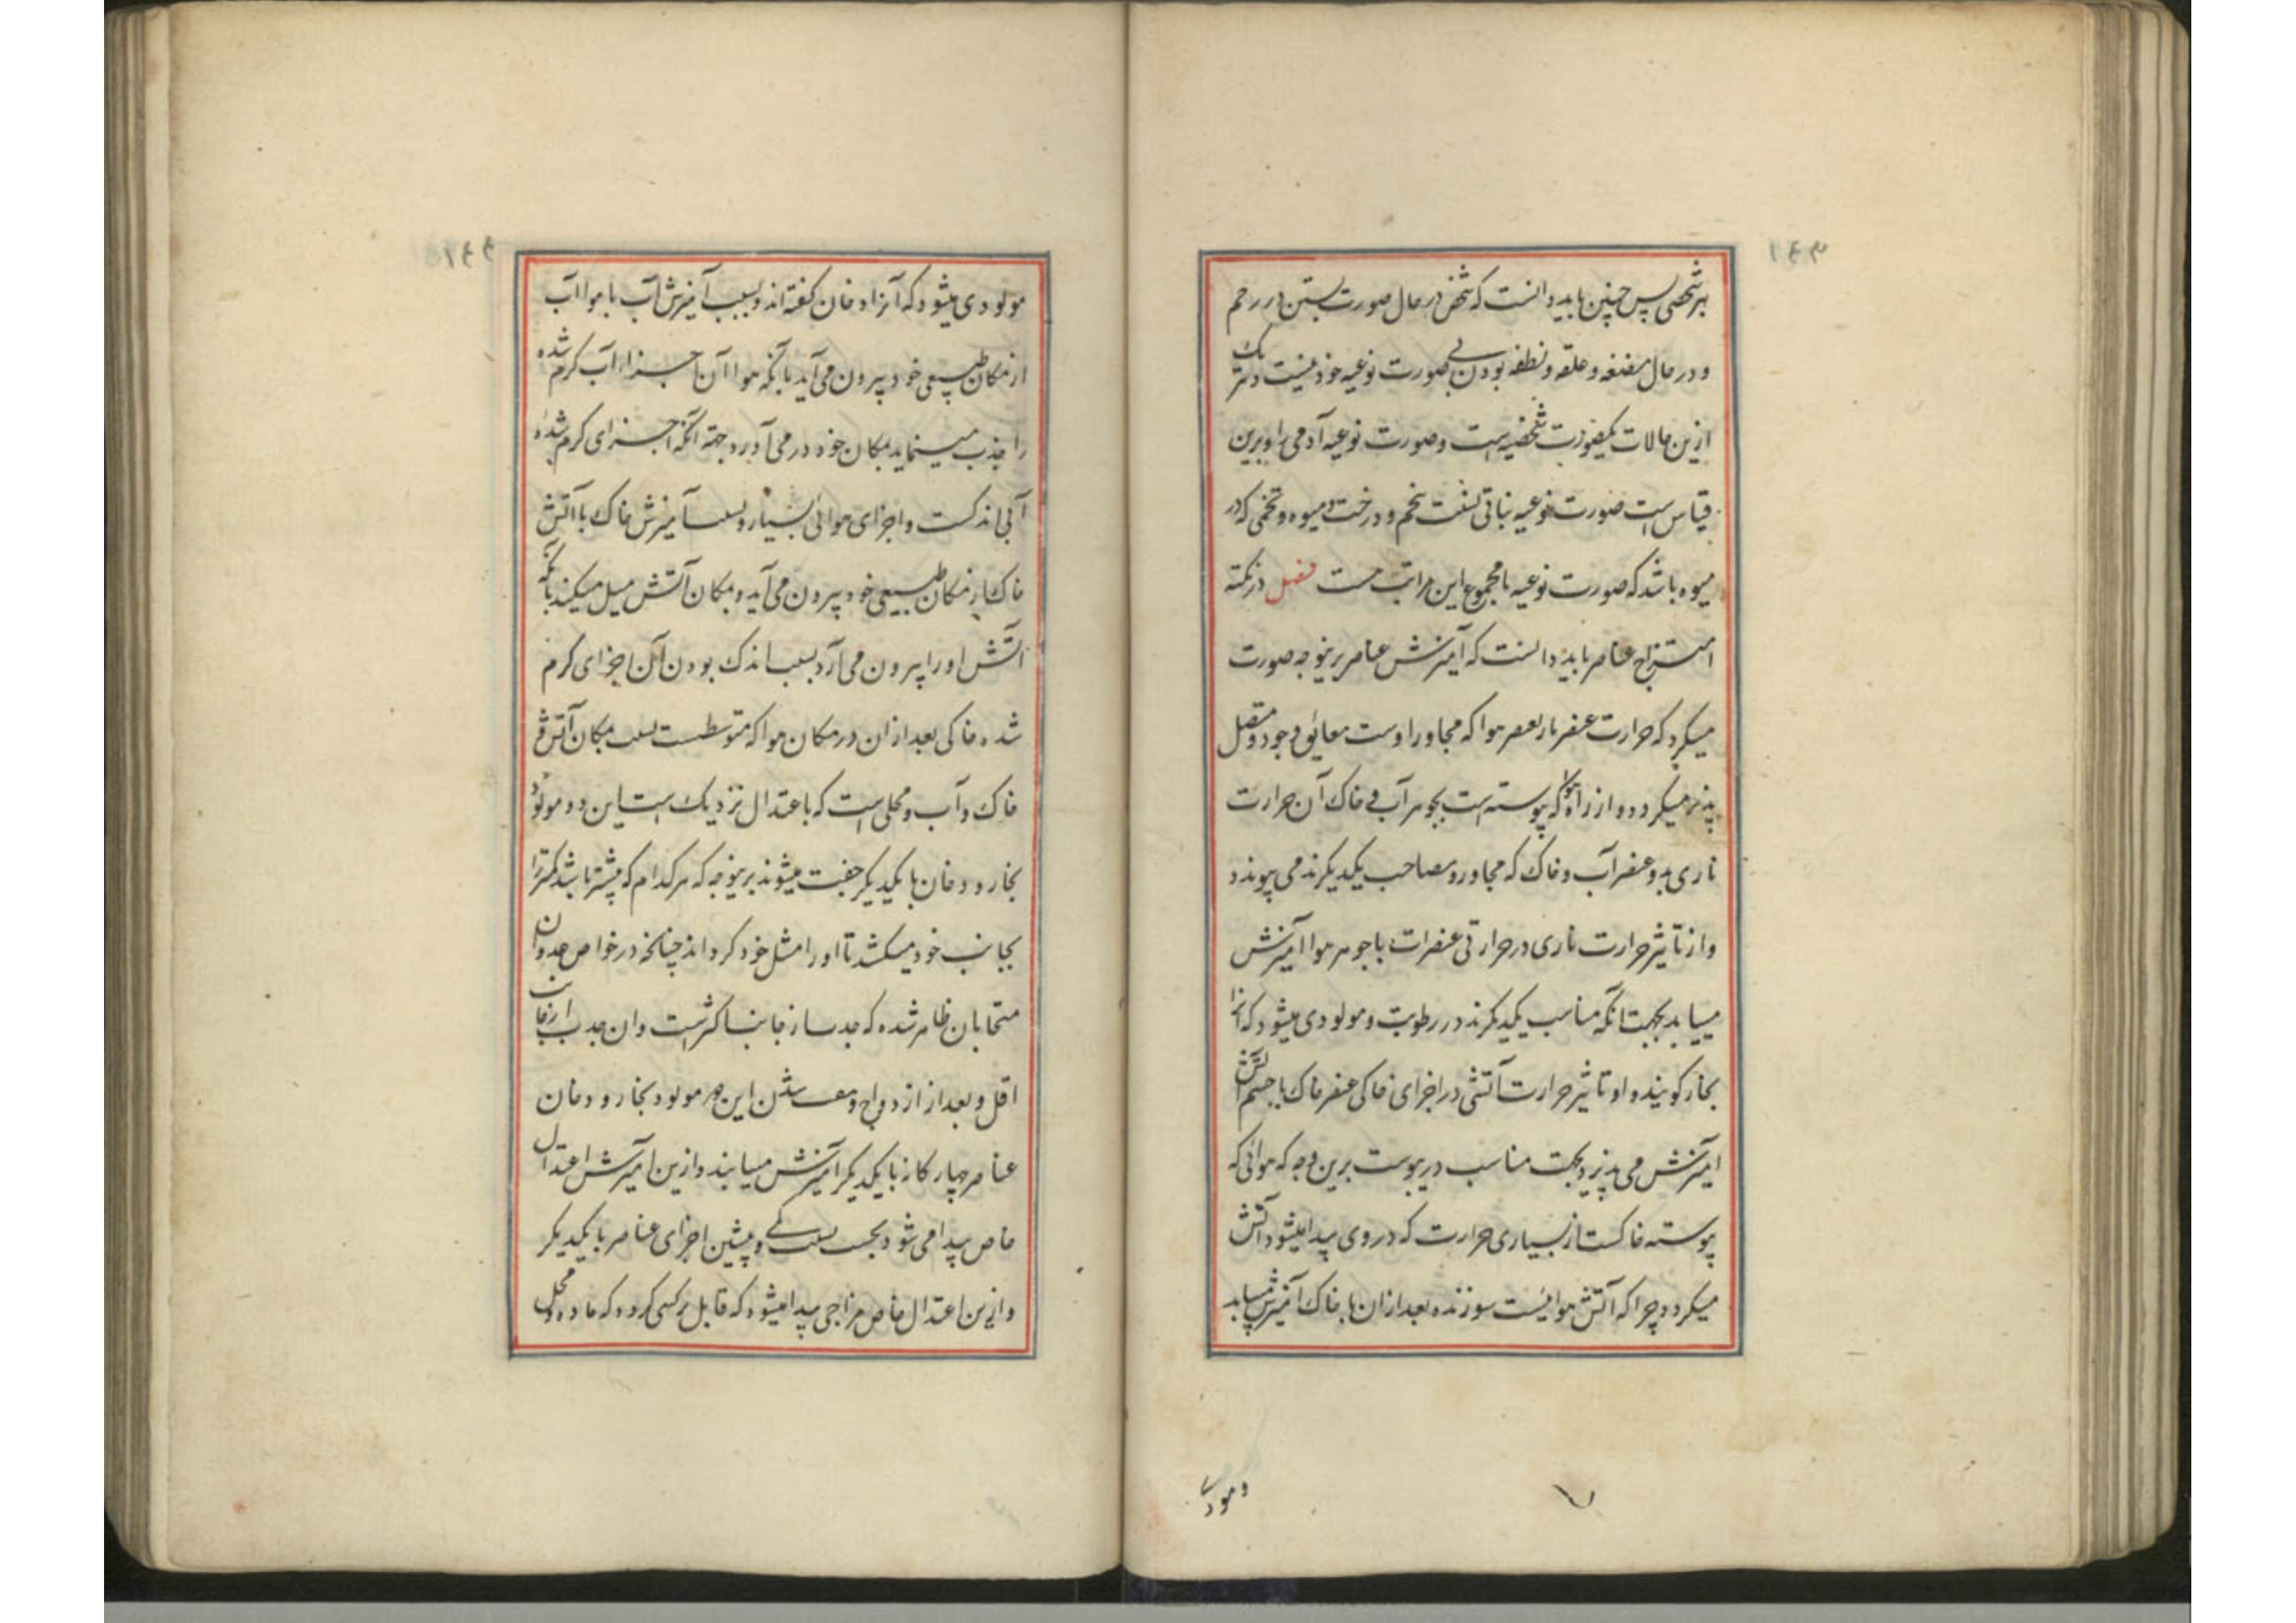 هر شخصی پس چنین باید دانست که شخص در حال صورت بستن در رحم
و در حال مضغه و علقه و نطفه بودن بی صورت نوعیه خود نیست و هر یک
ازین حالات یکصورت شخصیه است و صورت نوعیه آدمی را و برین
قیاس است صورت نوعیه نباتی نسبت تخم و درخت و میوه و تخمی که در
میوه باشد که صورت نوعیه با مجموع این مراتب هست فصل در نکته
امتزاج عناصر باید دانست که آمیزش عناصر برینوجه صورت
میکیرد که حرارت عنصر نار بعنصر هوا که مجاور اوست معانق وجود و متصل
پذیر میکردد و از راه هوا که پیوسته است بجوهر آب و خاک آن حرارت
ناری بدو عنصر آب و خاک که مجاور و مصاحب یکدیکرند می پیوندد
و از تاثیر حرارت ناری در حرارتی عنصر آب با جوهر هوا آمیزش
مییابد بجهت آنکه مناسب یکدیکرند در رطوبت و مولودی میشود که آنرا
بخار کویند و او تاثیر حرارت آتشی در اجزای خاکی عنصر خاک با جسم آتش
آمیزش می پذیرد بجهت مناسب در یبوست برین وجه که هوائی که
پیوسته خاکست از بسیاری حرارت که در وی پیدا میشود آتش
میکردد چرا که آتش هوائیست سوزنده بعد از آن با خاک آمیزش مییابد
و مودی
مولودی میشود که آنرا دخان کفته اند و بسبب آمیزش آب با هوا آب
از مکان طبیعی خود بیرون می آید بآنکه هوا آن اجزاء آب کرم شده
را جذب مینماید بمکان خود در می آورد جهة آنکه اجزای کرم شده
آبی اندکست و اجزای هوائی بسیار و بسبب آمیزش خاک با آتش
خاک از مکان طبیعی خود بیرون می آید و بمکان آتش میل میکند بآنکه
آتش او را بیرون می آرد بسبب اندک بودن آن اجزای کرم
شده خاکی بعد از ان در مکان هوا که متوسطست بمکان آتش و
خاک و آب و محلی است که باعتدال نزدیک است این دو مولود
بخار و دخان با یکدیکر جفت میشوند برینوجه که هر کدام که بیشتر باشد کمتر را
بجانب خود میکشد تا او را مثل خود کرداند چنانچه در خواص
متحابان ظاهر شده که جذب از جانب اکثرست و ان جذب از جانب
اقل و بعد از ازدواج و شدن این دو مولود بخار و دخان
عناصر چهارکانه با یکدیکر آمیزش مییابند و ازین آمیزش اعتدال
خاص پیدا می شود بحسب کمی و بیشی اجزای عناصر با یکدیکر
و ازین اعتدال خاص مزاجی پیدا میشود که قابل کردد که ماده و محل